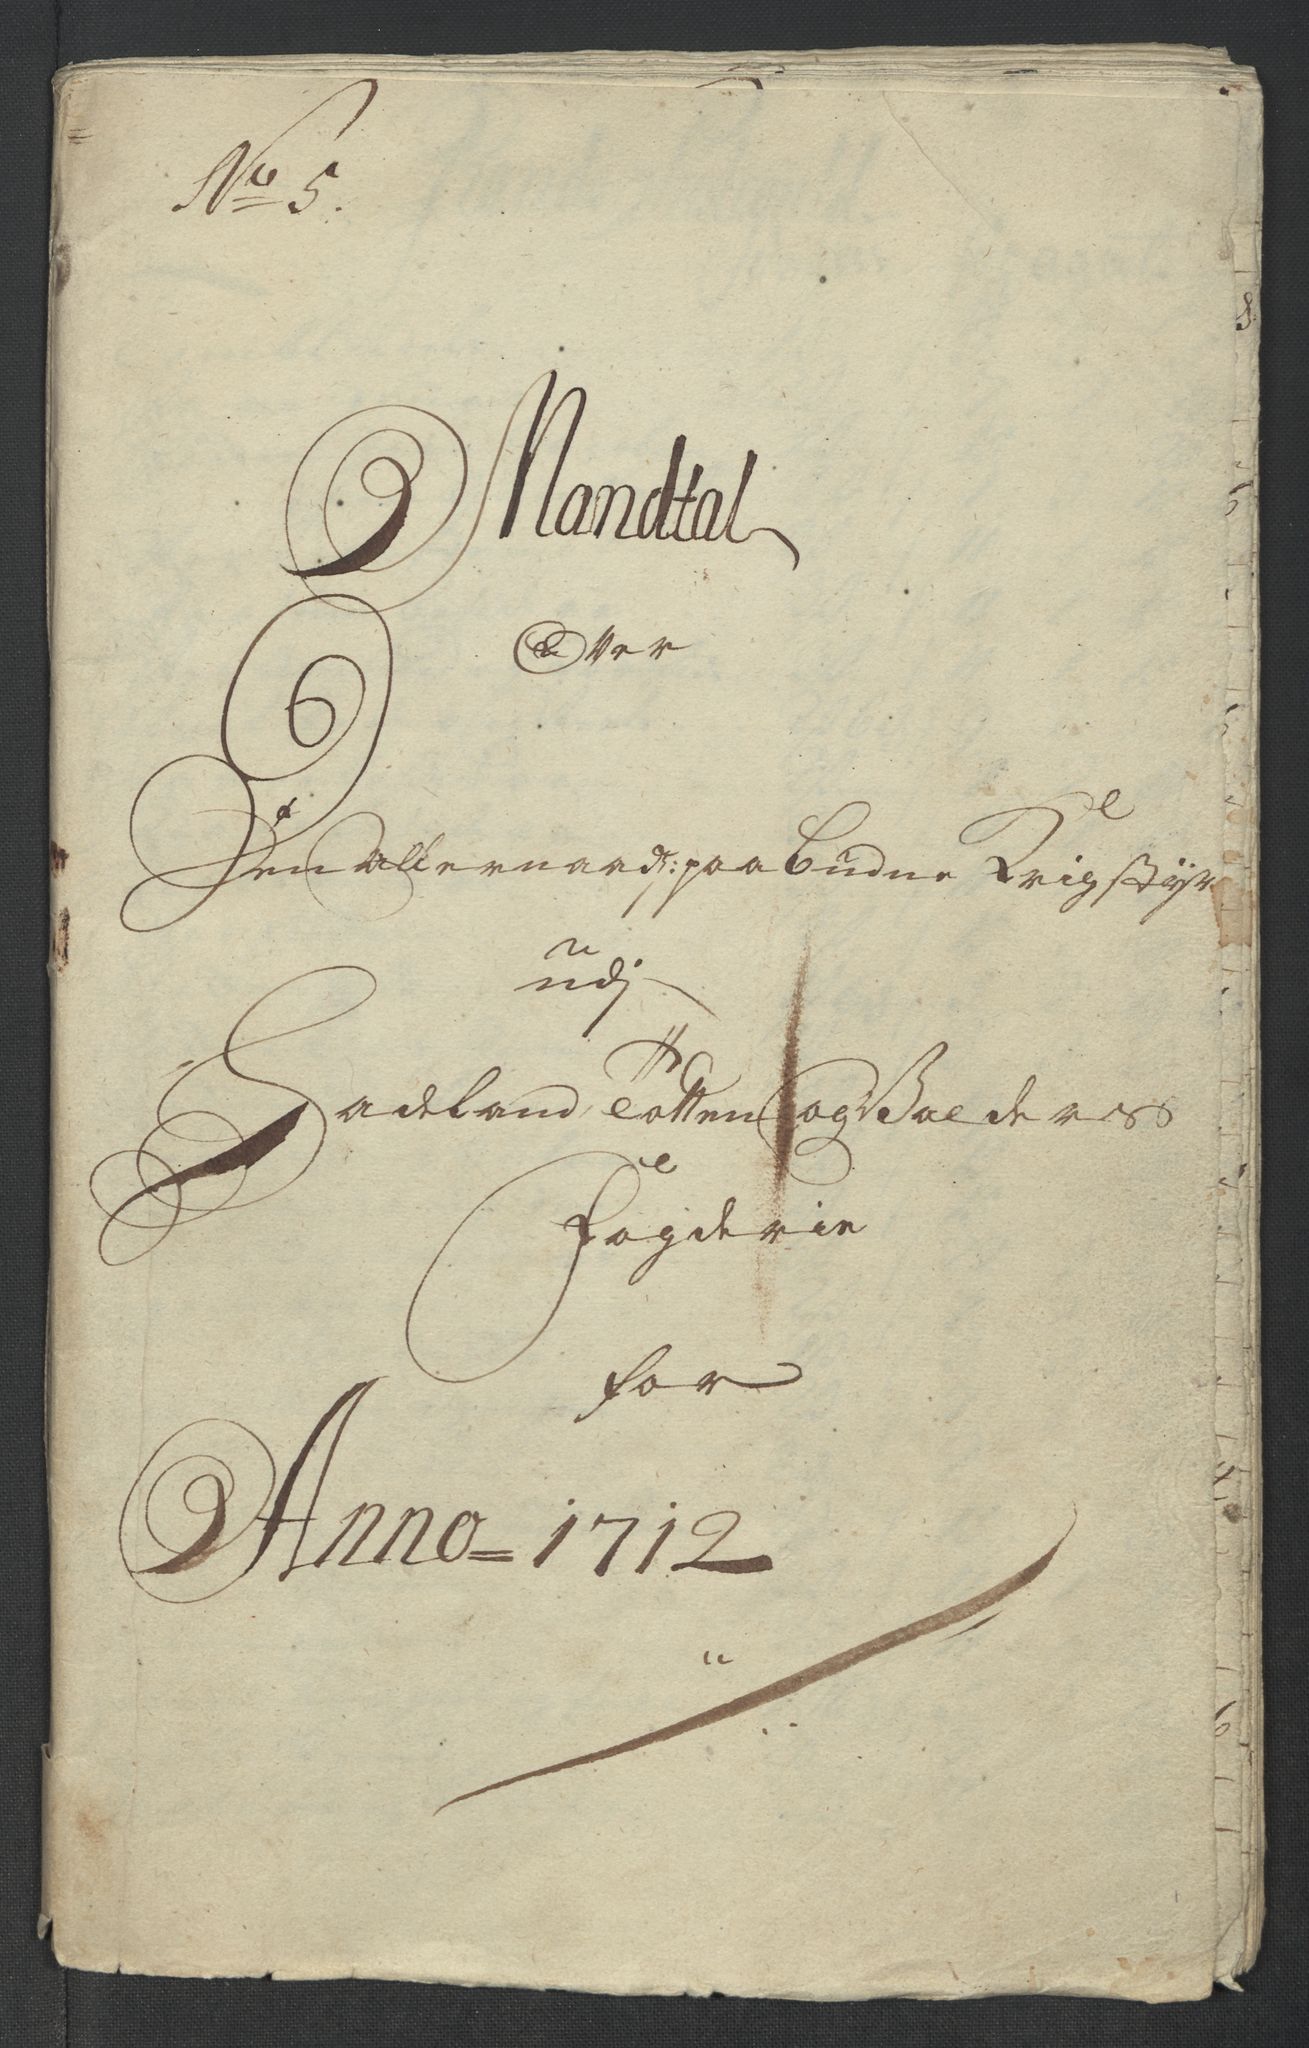 No 5.
Mandtal
Over
Den Allernaads: paabudne Krigstyr
udj
Hadeland, Totten og Valders
Fogderie
for
Anno = 1712